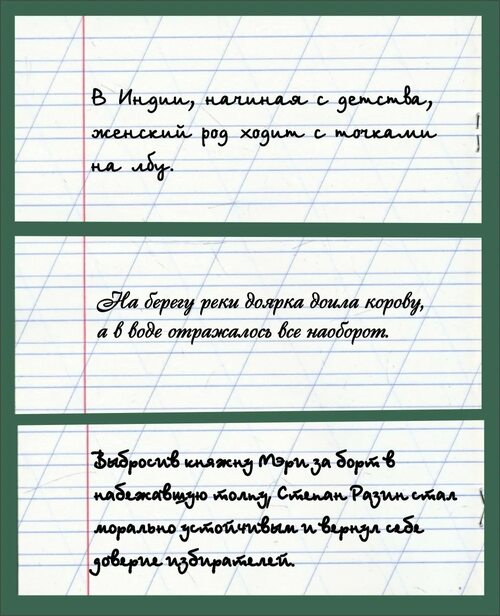 В Индии, начиная с детства,
женский род ходит с точками
на лбу.
На берегу реки доярка доила корову,
а в воде отражалось все наоборот.
Выбросив княжну Мэри за борт в
набежавшую толпу, Степан Разин стал
морально устойчивым и вернул себе
доверие избирателей.